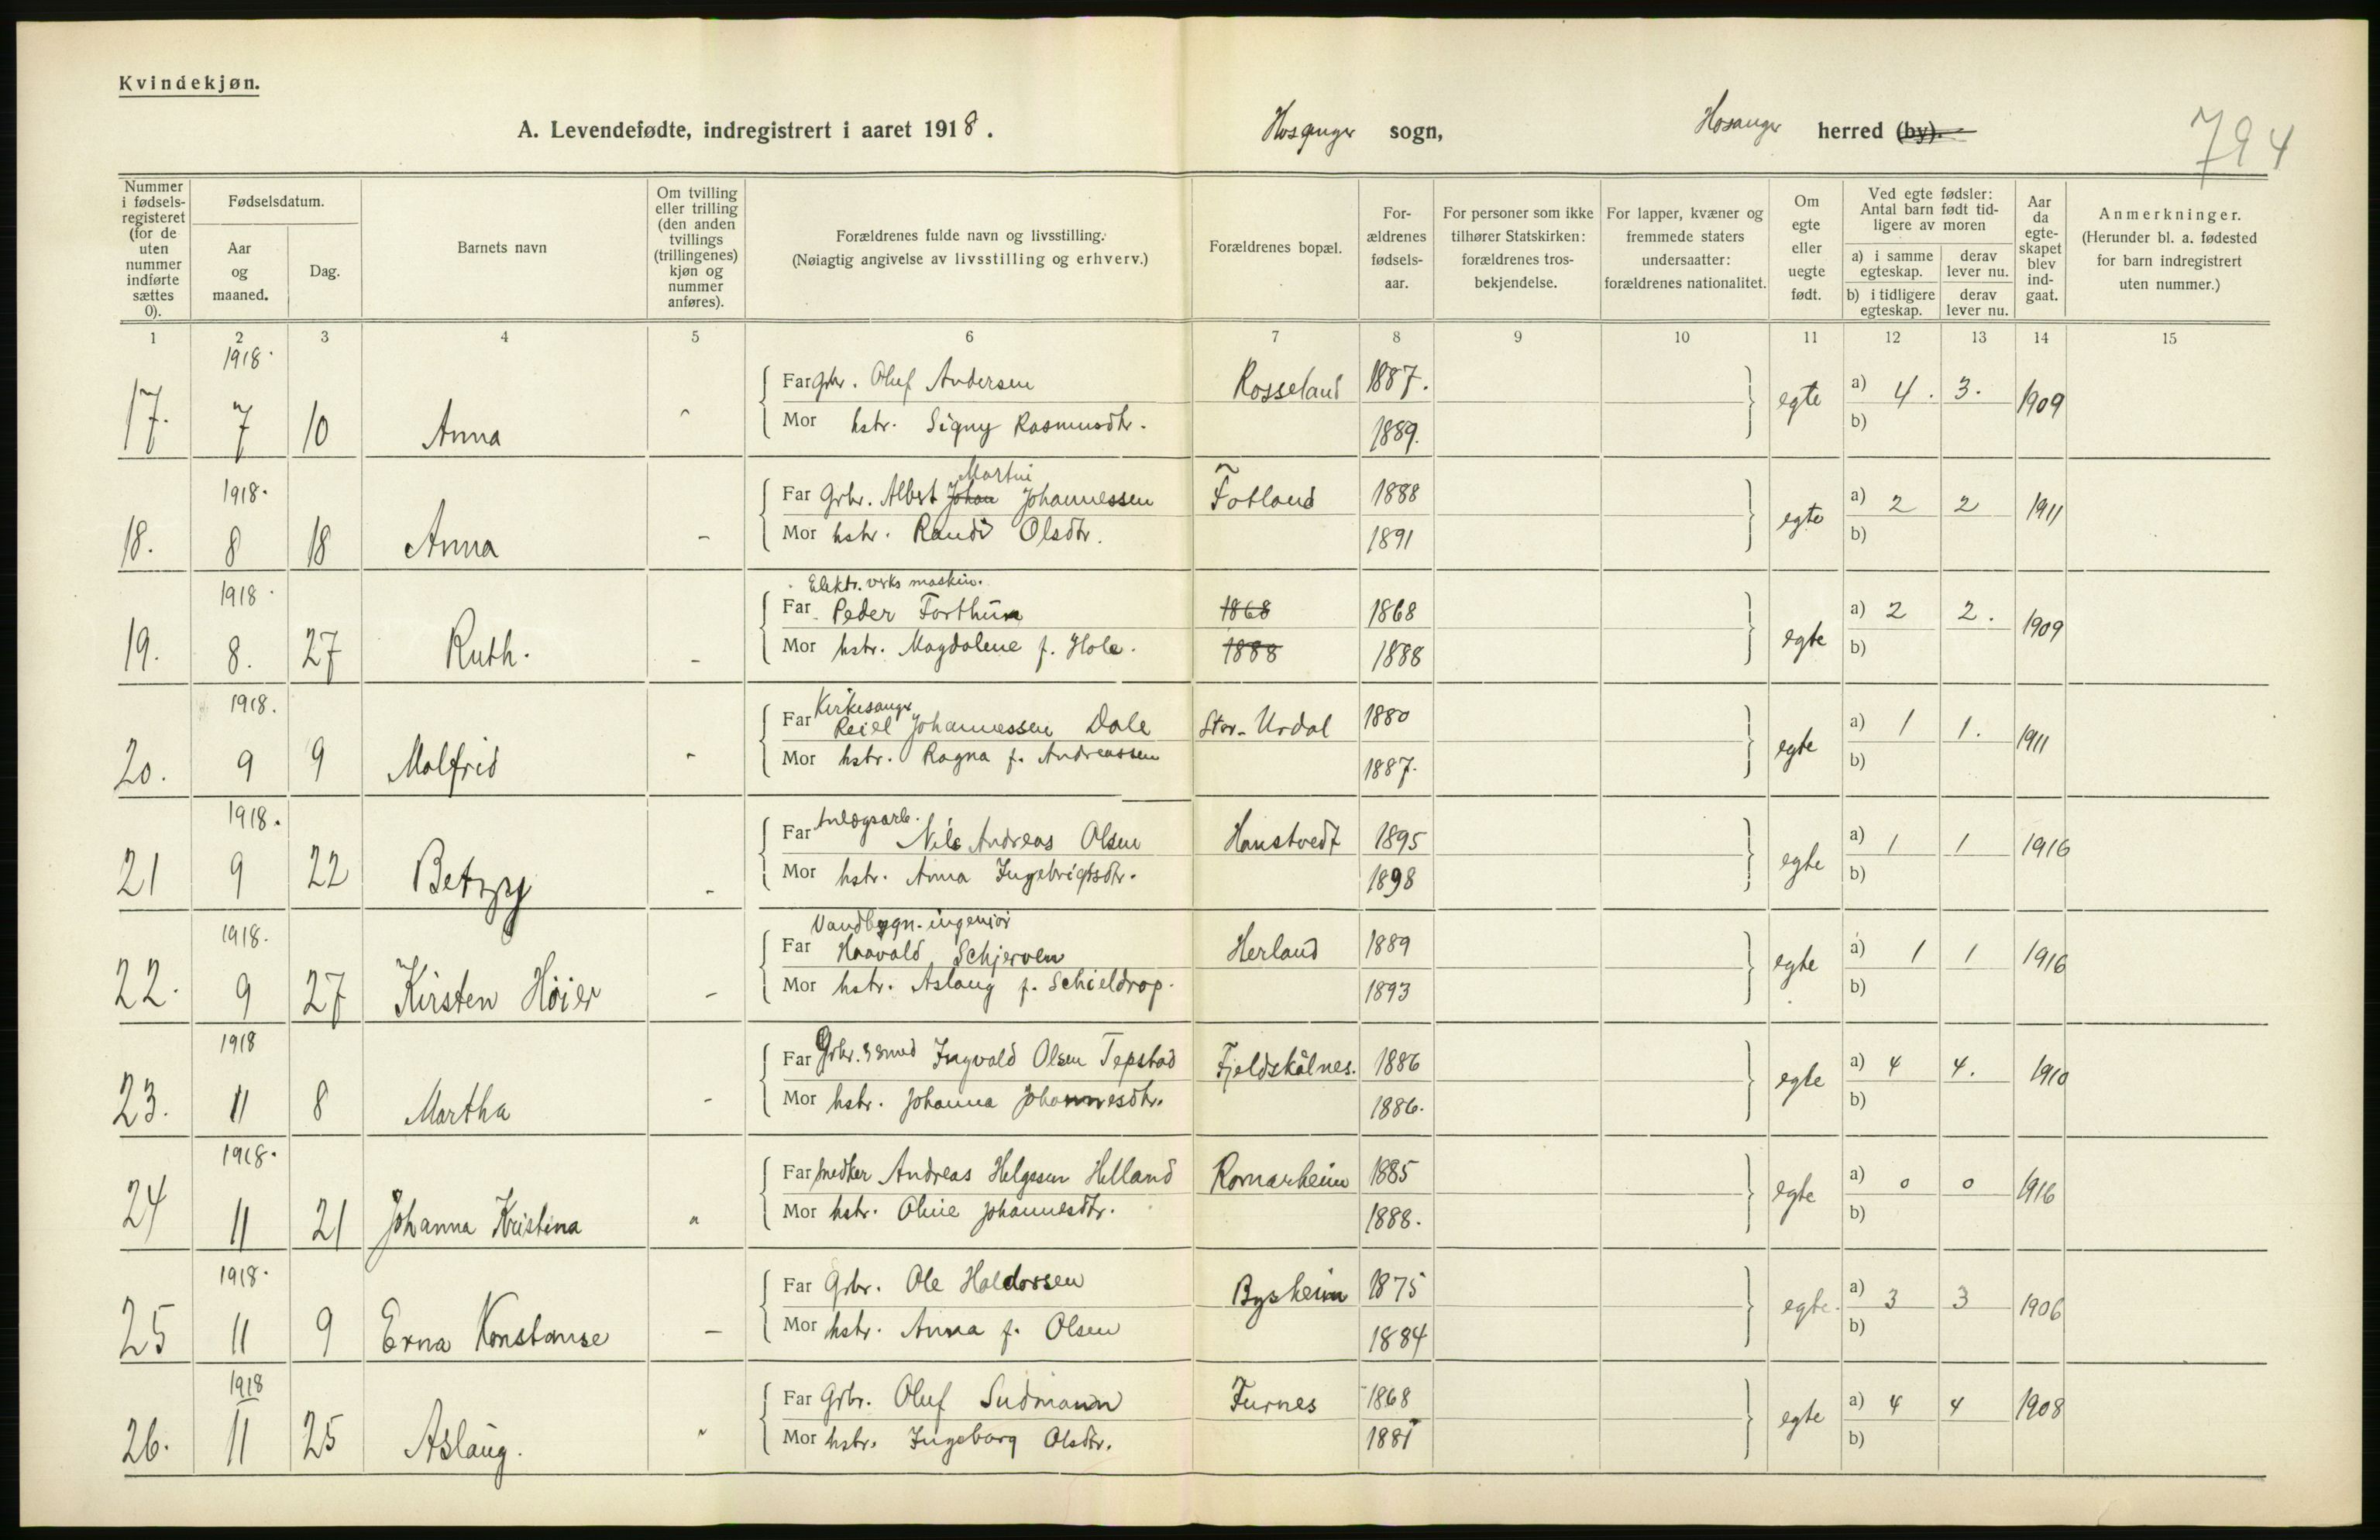 Kvindekjøn.
A. Levendefødte, indregistrert i aaret 1918. Hosanger sogn, Hosanger herred (by).
794
Nummer i fødselsregisteret (for de uten nummer indførte sættes 0).
Fødselsdatum.
Aar og maaned.
Dag.
Barnets navn
Om tvilling eller trilling (den anden tvillings (trillingenes) kjøn og nummer anføres).
Forældrenes fulde navn og livsstilling.
(Nøiagtig angivelse av livsstilling og erhverv.)
Forældrenes bopæl.
Forældrenes fødselsaar.
For personer som ikke tilhører Statskirken: forældrenes trosbekjendelse.
For lapper, kvæner og fremmede staters undersaatter: forældrenes nationalitet.
Om egte eller uegte født.
Ved egte fødsler: Antal barn født tidligere av moren
a) i samme egteskap. derav lever nu.
b) i tidligere egteskap. derav lever nu.
Aar da egteskapet blev indgaat.
Anmerkninger.
(Herunder bl. a. fødested for barn indregistrert uten nummer.)
1 2 3 4 5 6 7 8 9 10 11 12 13 14 15
1918.
Far Gbr. Oluf Andersen Rosseland 1887.
17. 7 10 Anna egte a) 4. 3. 1909
Mor hstr. Signy Rasmusdtr. 1889. b)
1918. Martin
Far Grbr. Albert Johan Johannessen Fotland 1888
18. 8 18 Anna - egte a) 2 2 1911
Mor hstr. Randi Olsdtr. 1891 b)
1918. Elektr. verks maskin.
Far Peder Forthun 1868 1868
19. 8. 27 Ruth. - egte a) 2 2. 1909
Mor hstr. Magdalene f. Hole. 1888 1888 b)
1918. Kirkesanger
Far Reiel Johannessen Dale Stor-Urdal 1880
20. 9 9 Malfrid - egte a) 1 1. 1911
Mor hstr. Ragna f. Andreassen 1887. b)
1918. Anlægsarb.
Far Nils Andreas Olsen Hanstvedt 1895
21 9 22 Betzy - egte a) 1 1 1916
Mor hstr. Anna Ingebrigtsdtr. 1898 b)
1918. Vandbygn.-ingeniør
Far Haavald Schjerven Herland 1889
22. 9 27 Kirsten Höier - egte a) 1 1 1916
Mor hstr. Aslaug f. Schieldrop. 1893 b)
1918
Far Grbr. & smed Ingvald Olsen Tepstad Fjeldskålnes. 1886
23. 11 8 Martha - egte a) 4 4. 1910
Mor hstr. Johanna Johannesdtr. 1886. b)
1918.
Far Andreas Helgesen Helland Romarheim 1885
24 11 21 Johanna Kristina " egte a) 0 0 1916
Mor hstr. Oline Johannesdtr. 1888. b)
1918.
Far Grbr. Ole Haldorsen Bysheim 1875
25 11 9 Erna Konstanse - egte. a) 3 3 1906
Mor hstr. Anna f. Olsen 1884 b)
1918
Far Grbr. Oluf Sudmann Furnes 1868
26. 11 25 Aslaug. " egte a) 4 4 1908
Mor hstr. Ingeborg Olsdtr. 1881 b)